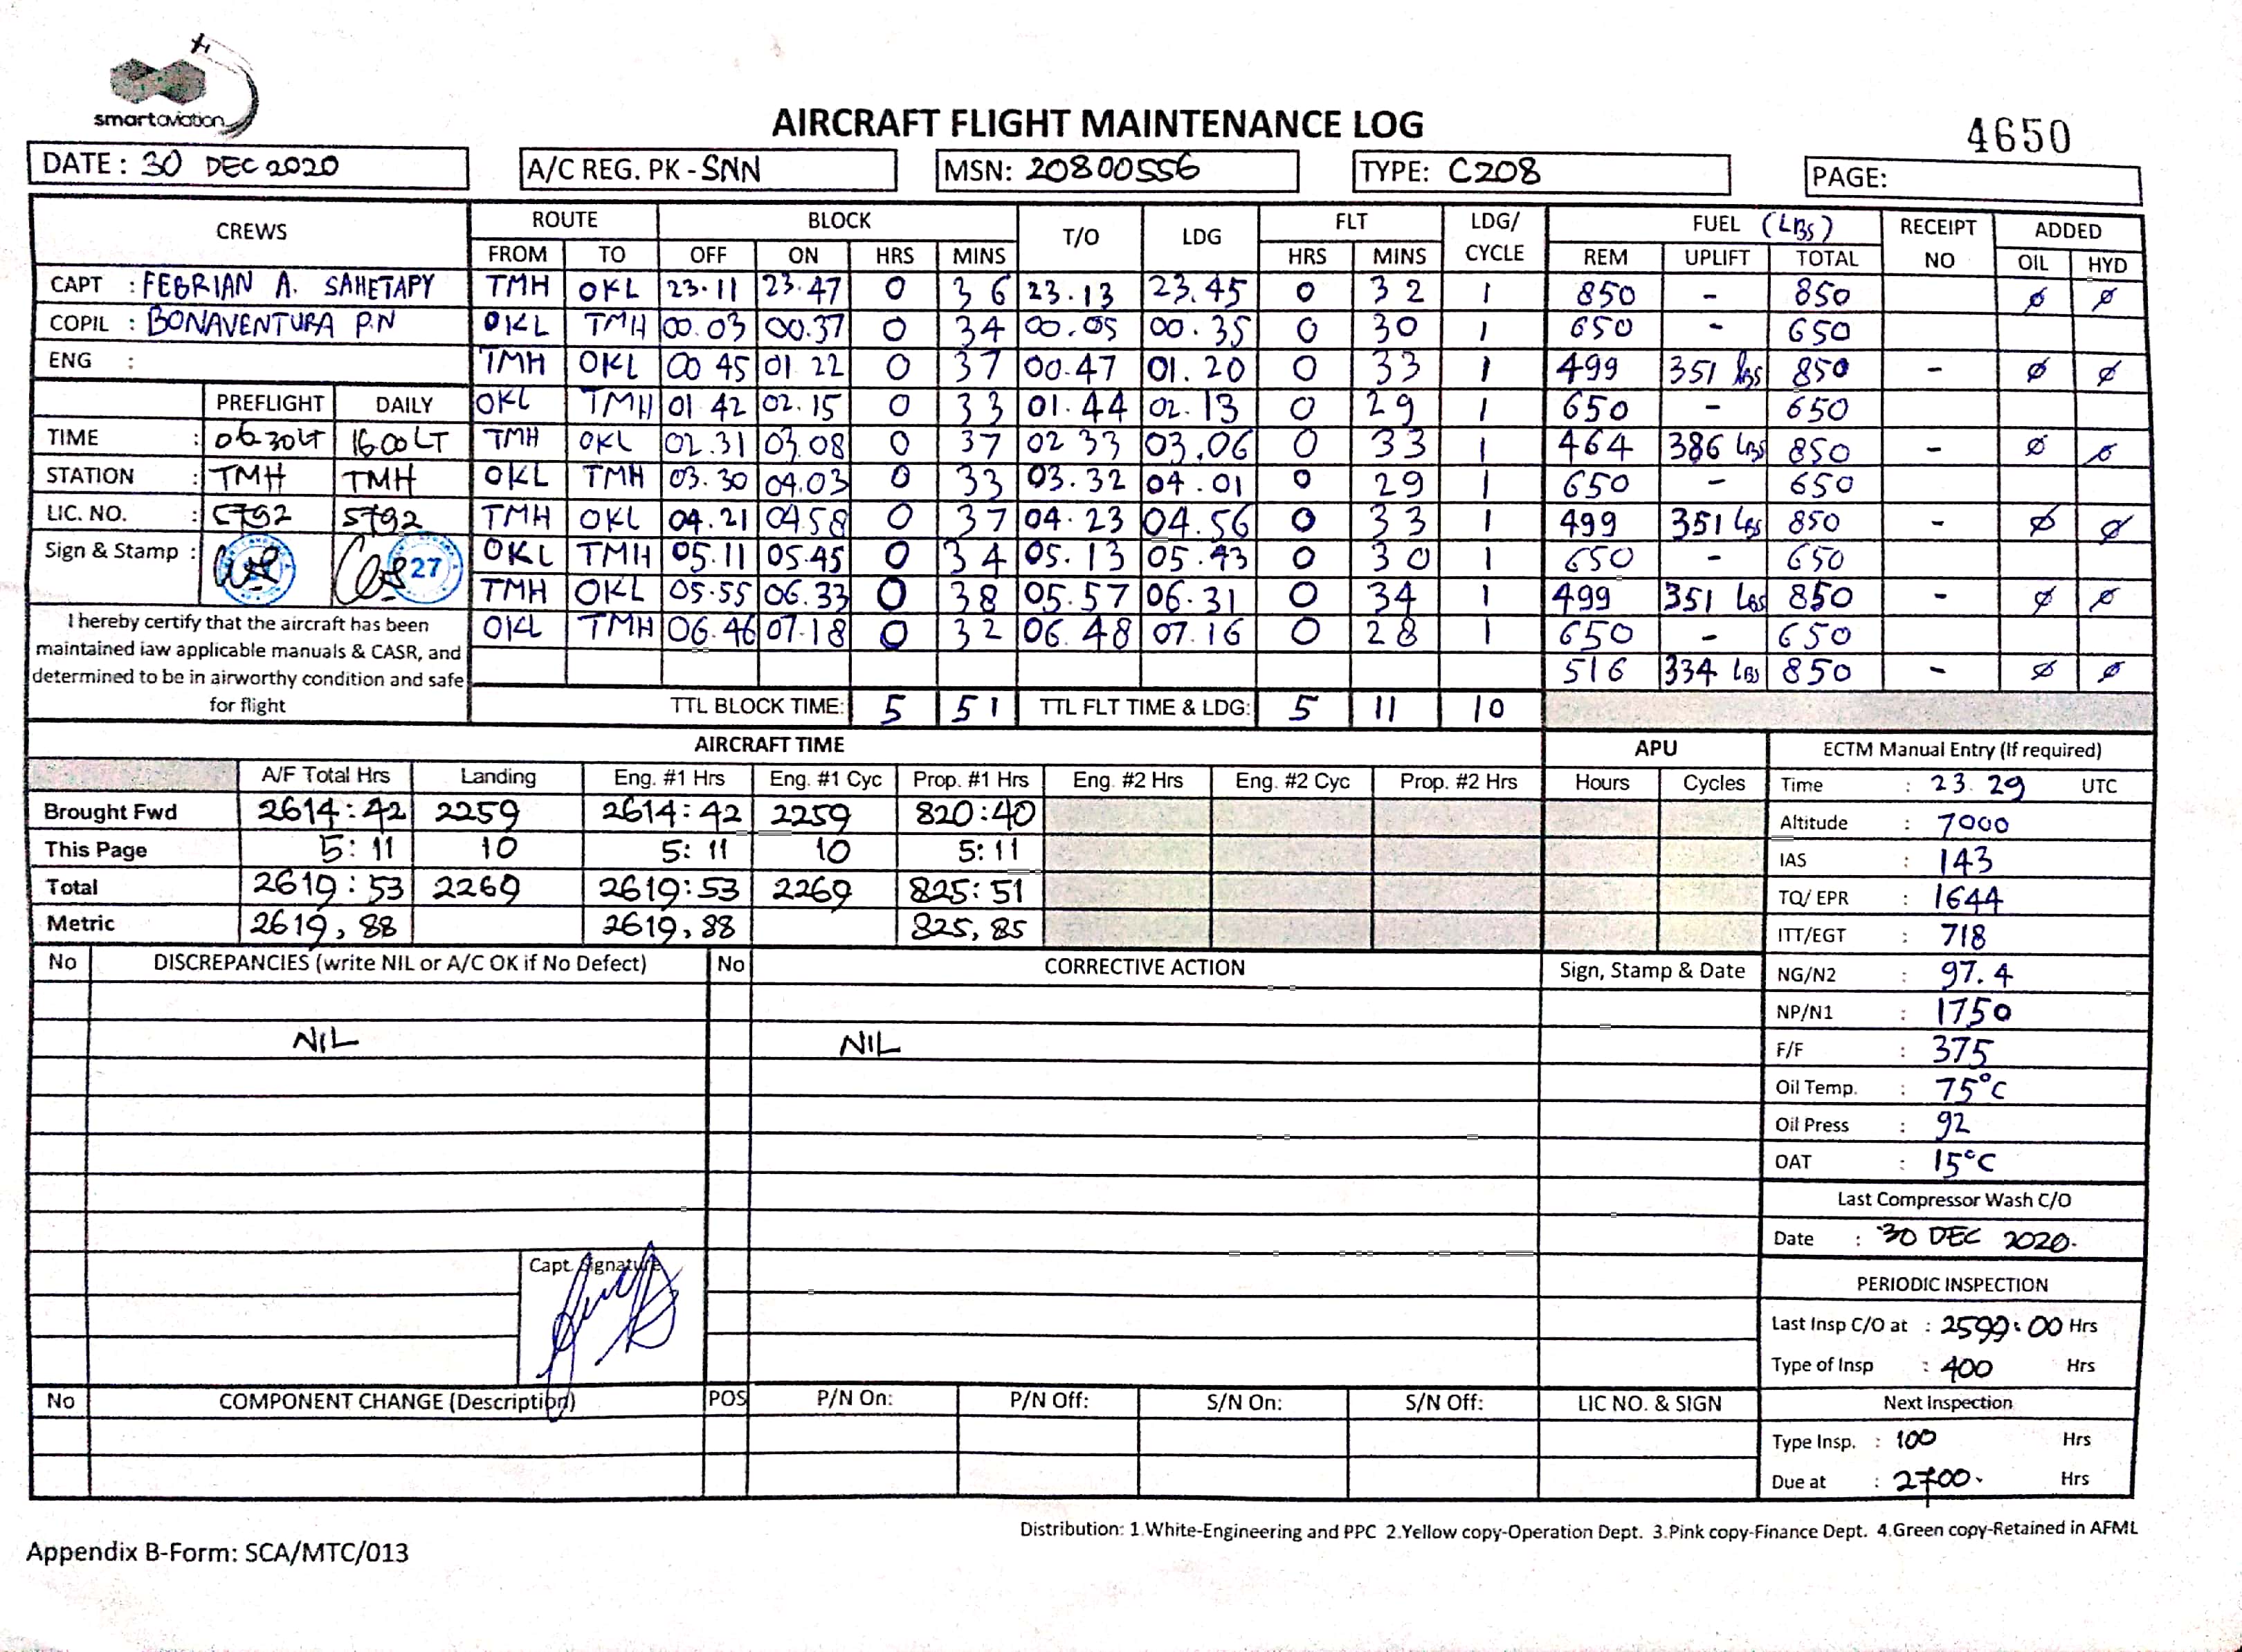 smartaviation
AIRCRAFT FLIGHT MAINTENANCE LOG
4650
DATE : 30 DEC 2020 A/C REG. PK - SNN MSN: 20800556 TYPE: C208 PAGE:
CREWS ROUTE BLOCK T/O LDG FLT LDG/ CYCLE FUEL (LBS) RECEIPT NO ADDED
FROM TO OFF ON HRS MINS HRS MINS REM UPLIFT TOTAL OIL HYD
CAPT : FEBRIAN A. SAHETAPY TMH OKL 23.11 23.47 0 36 23.13 23.45 0 32 1 850 - 850 ø ø
COPIL : BONAVENTURA P.N OKL TMH 00.03 00.37 0 34 00.05 00.35 0 30 1 650 - 650
ENG : TMH OKL 00 45 01 22 0 37 00.47 01.20 0 33 1 499 351 lbs 850 - ø ø
PREFLIGHT DAILY OKL TMH 01 42 02.15 0 33 01.44 02.13 0 29 1 650 - 650
TIME : 06.30LT 1600LT TMH OKL 02.31 03.08 0 37 02 33 03.06 0 33 1 464 386 LBS 850 - ø ø
STATION : TMH TMH OKL TMH 03.30 04.03 0 33 03.32 04.01 0 29 1 650 - 650
LIC. NO. : 5792 5792 TMH OKL 04.21 04 58 0 37 04.23 04.56 0 33 1 499 351 LBS 850 - ø ø
Sign & Stamp : 27 OKL TMH 05.11 05.45 0 34 05.13 05.43 0 30 1 650 - 650
TMH OKL 05.55 06.33 0 38 05.57 06.31 0 34 1 499 351 LBS 850 - ø ø
I hereby certify that the aircraft has been
maintained iaw applicable manuals & CASR, and
determined to be in airworthy condition and safe
for flight
OKL TMH 06.46 07.18 0 32 06.48 07.16 0 28 1 650 - 650
516 334 LBS 850 - ø ø
TTL BLOCK TIME: 5 51 TTL FLT TIME & LDG: 5 11 10
AIRCRAFT TIME APU ECTM Manual Entry (If required)
A/F Total Hrs Landing Eng. #1 Hrs Eng. #1 Cyc Prop. #1 Hrs Eng. #2 Hrs Eng. #2 Cyc Prop. #2 Hrs Hours Cycles Time : 23.29 UTC
Brought Fwd 2614:42 2259 2614:42 2259 820:40 Altitude : 7000
This Page 5:11 10 5:11 10 5:11 IAS : 143
Total 2619:53 2269 2619:53 2269 825:51 TQ/ EPR : 1644
Metric 2619,88 2619,88 825,85 ITT/EGT : 718
No DISCREPANCIES (write NIL or A/C OK if No Defect) No CORRECTIVE ACTION Sign, Stamp & Date NG/N2 : 97.4
NP/N1 : 1750
NIL NIL F/F : 375
Oil Temp. : 75°C
Oil Press : 92
OAT : 15°C
Last Compressor Wash C/O
Date : 30 DEC 2020.
Capt. Signature
PERIODIC INSPECTION
Last Insp C/O at : 2599:00 Hrs
Type of Insp : 400 Hrs
No COMPONENT CHANGE (Description) POS P/N On: P/N Off: S/N On: S/N Off: LIC NO. & SIGN Next Inspection
Type Insp. : 100 Hrs
Due at : 2700. Hrs
Distribution: 1.White-Engineering and PPC 2.Yellow copy-Operation Dept. 3.Pink copy-Finance Dept. 4.Green copy-Retained in AFML
Appendix B-Form: SCA/MTC/013